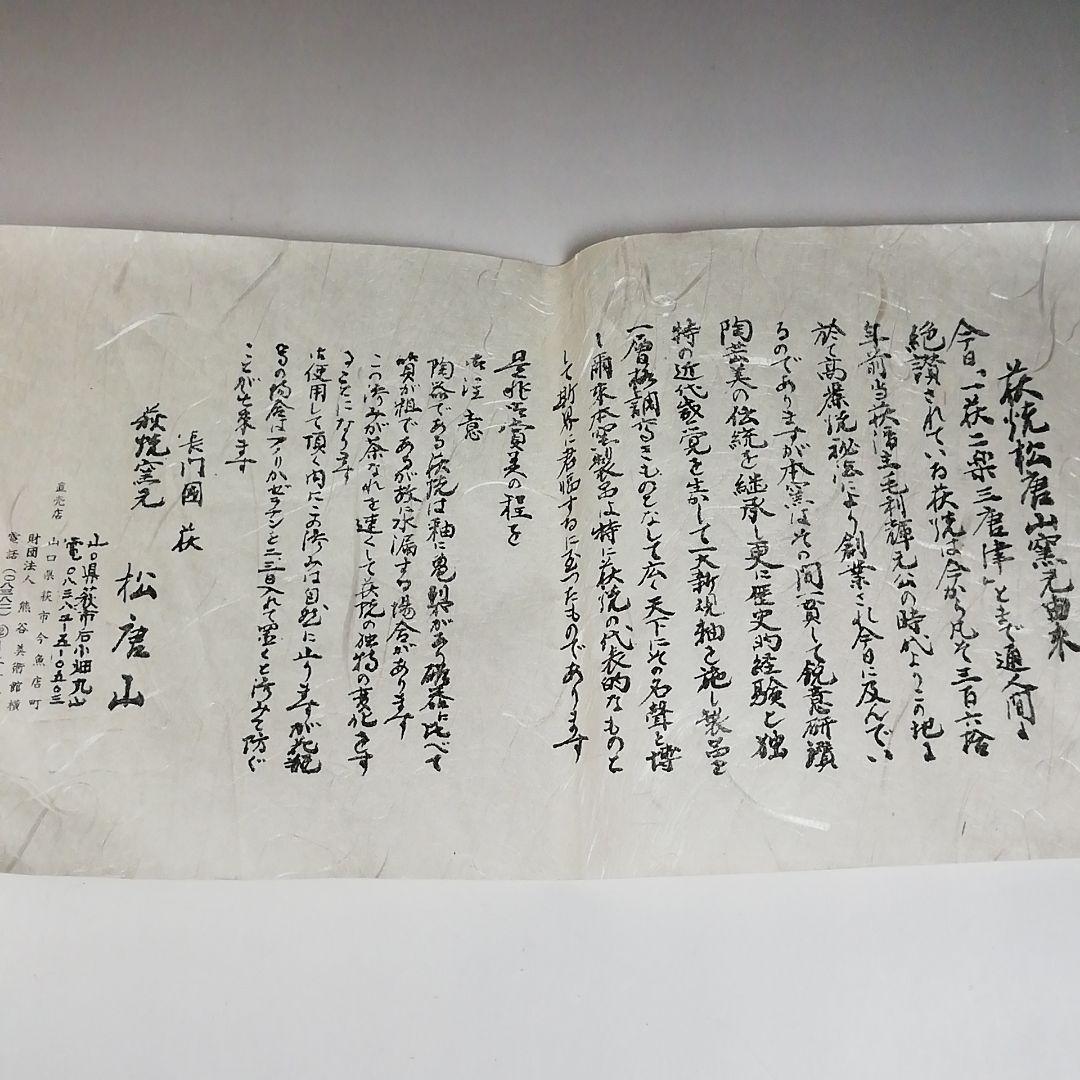 萩焼松唐山窯元由来
今日、「一萩二楽三唐津」とまで通人間に
絶讃されている萩焼は今から凡そ三百六拾
年前当萩藩主毛利輝元公の時代よりこの地に
於て高麗焼秘法により創業され今日に及んでい
るのでありますが本窯は其の間一貫して鋭意研鑽
陶芸美の伝統を継承し更に歴史的経験と独
特の近代感覚を生かして一大新規釉を施し製品を
一層格調高きものとなして広く天下にその名聲を博
し爾來本窯製品は特に萩焼の代表的なものと
して斯界に君臨するに至つたものであります
是非御賞美の程を
御注意
陶器である萩焼は釉に亀裂があり磁器に比べて
質が粗であるが故に水漏する場合があります
この滲みが茶なれを速くして萩焼の独特の変化を
きことになります
御使用して頂く内にこの滲みは自然に止りますが花瓶
等の場合はフノリかゼラチンを二三日入れて置くと滲みを防ぐ
ことが出来ます
長門國 萩
萩焼窯元 松唐山
山口県萩市后小畑丸山
電〇八三八二-五-〇五〇三
直売店
山口県萩市今魚店町
財団法人 熊谷美術館横
電話(〇八三八二)